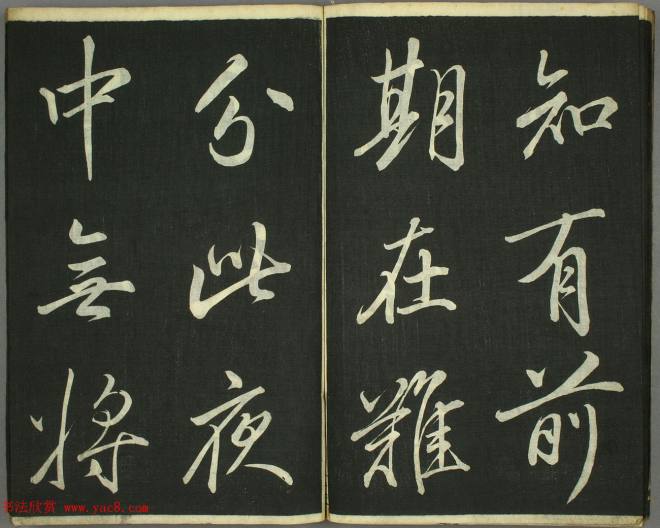 知有前
期在難
分此夜
中無將
书法欣赏 www.yac8.com